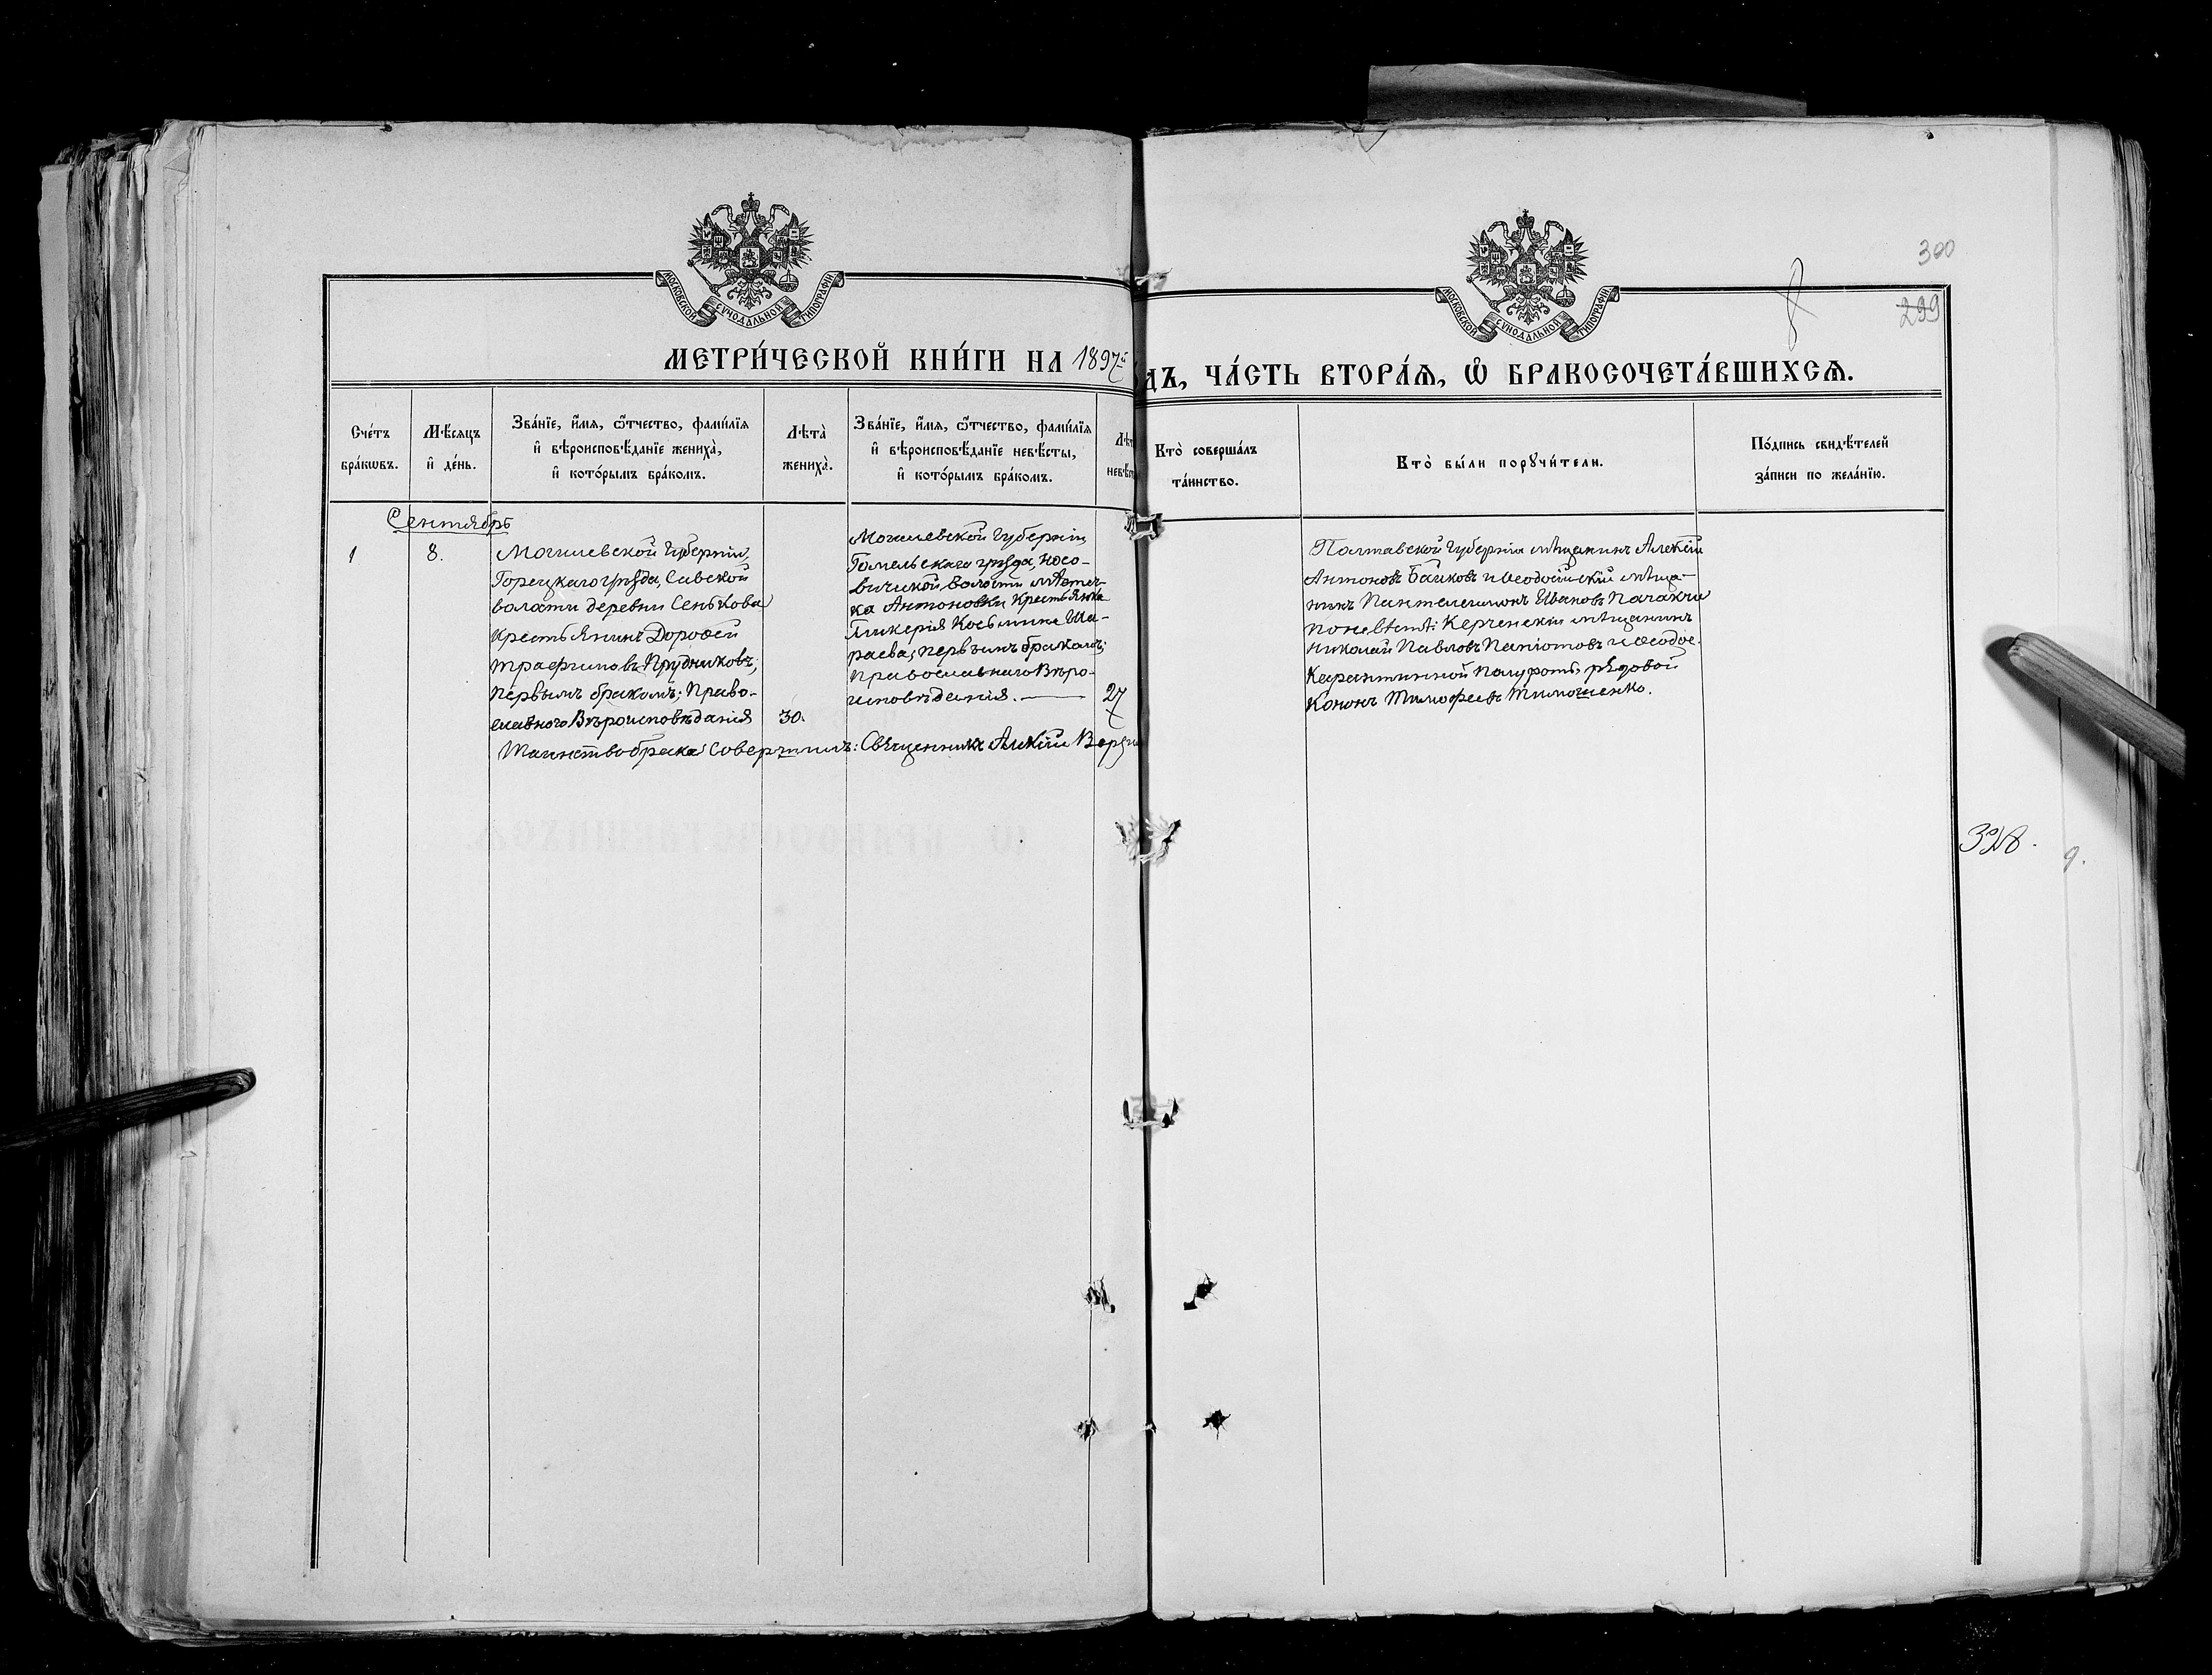 МОСКОВСКОЙ СѴНОДАЛЬНОЙ ТИПОГРАФІИ
МОСКОВСКОЙ СѴНОДАЛЬНОЙ ТИПОГРАФІИ
300
299
МЕТРИ́ЧЕСКОЙ КНИ́ГИ НА 1897й
ДЪ, ЧА́СТЬ ВТОРА́Ѧ, Ѽ БРАКОСОЧЕТА́ВШИХСѦ.
Сче́тъ
бра́кѡвъ.
Мѣ́сяцъ
и҆ де́нь.
Зва́нїе, и҆́мя, ѻ҆́тчество, фами́лїя
и҆ вѣроисповѣ́данїе жениха̀,
и҆ кото́рымъ бра́комъ.
Лѣта̀
жениха̀.
Зва́нїе, и҆́мя, ѻ҆́тчество, фами́лїя
и҆ вѣроисповѣ́данїе невѣ́сты,
и҆ кото́рымъ бра́комъ.
Лѣт
невѣст
Кто̀ соверша́лъ
та́инство.
Кто̀ бы́ли порꙋчи́тели.
По́дпись свидѣ́телей
за́писи по жела́нїю.
Сентябрь
1
8.
Могилевской Губерніи,
Горецкаго уѣзда, Савской
волости деревни Сенькова
Крестьянинъ Дорофей
Прудниковъ;
первымъ бракомъ; Право-
славного Вѣроисповѣданія
30.
Могилевской Губерніи
Гомельскаго уѣзда, Носо-
вичской волости мѣстеч-
ка Антоновки Крестьянка
Гликерія Косьмина Ша-
раева; первымъ бракомъ;
православнаго Вѣро-
исповѣданія.
27
Таинство брака совершилъ: Священникъ Алексій
Полтавской Губерніи мѣщанинъ Алексій
Антоновъ Байковъ и Ѳеодосійскій мѣща-
нинъ Пантелеимонъ Ивановъ
по невѣстѣ: Керченскій мѣщанинъ
Николай Павловъ и Ѳеодос.
Карантинной рядовой
Кононъ Тимофеевъ Тимошенко.
328.
9.